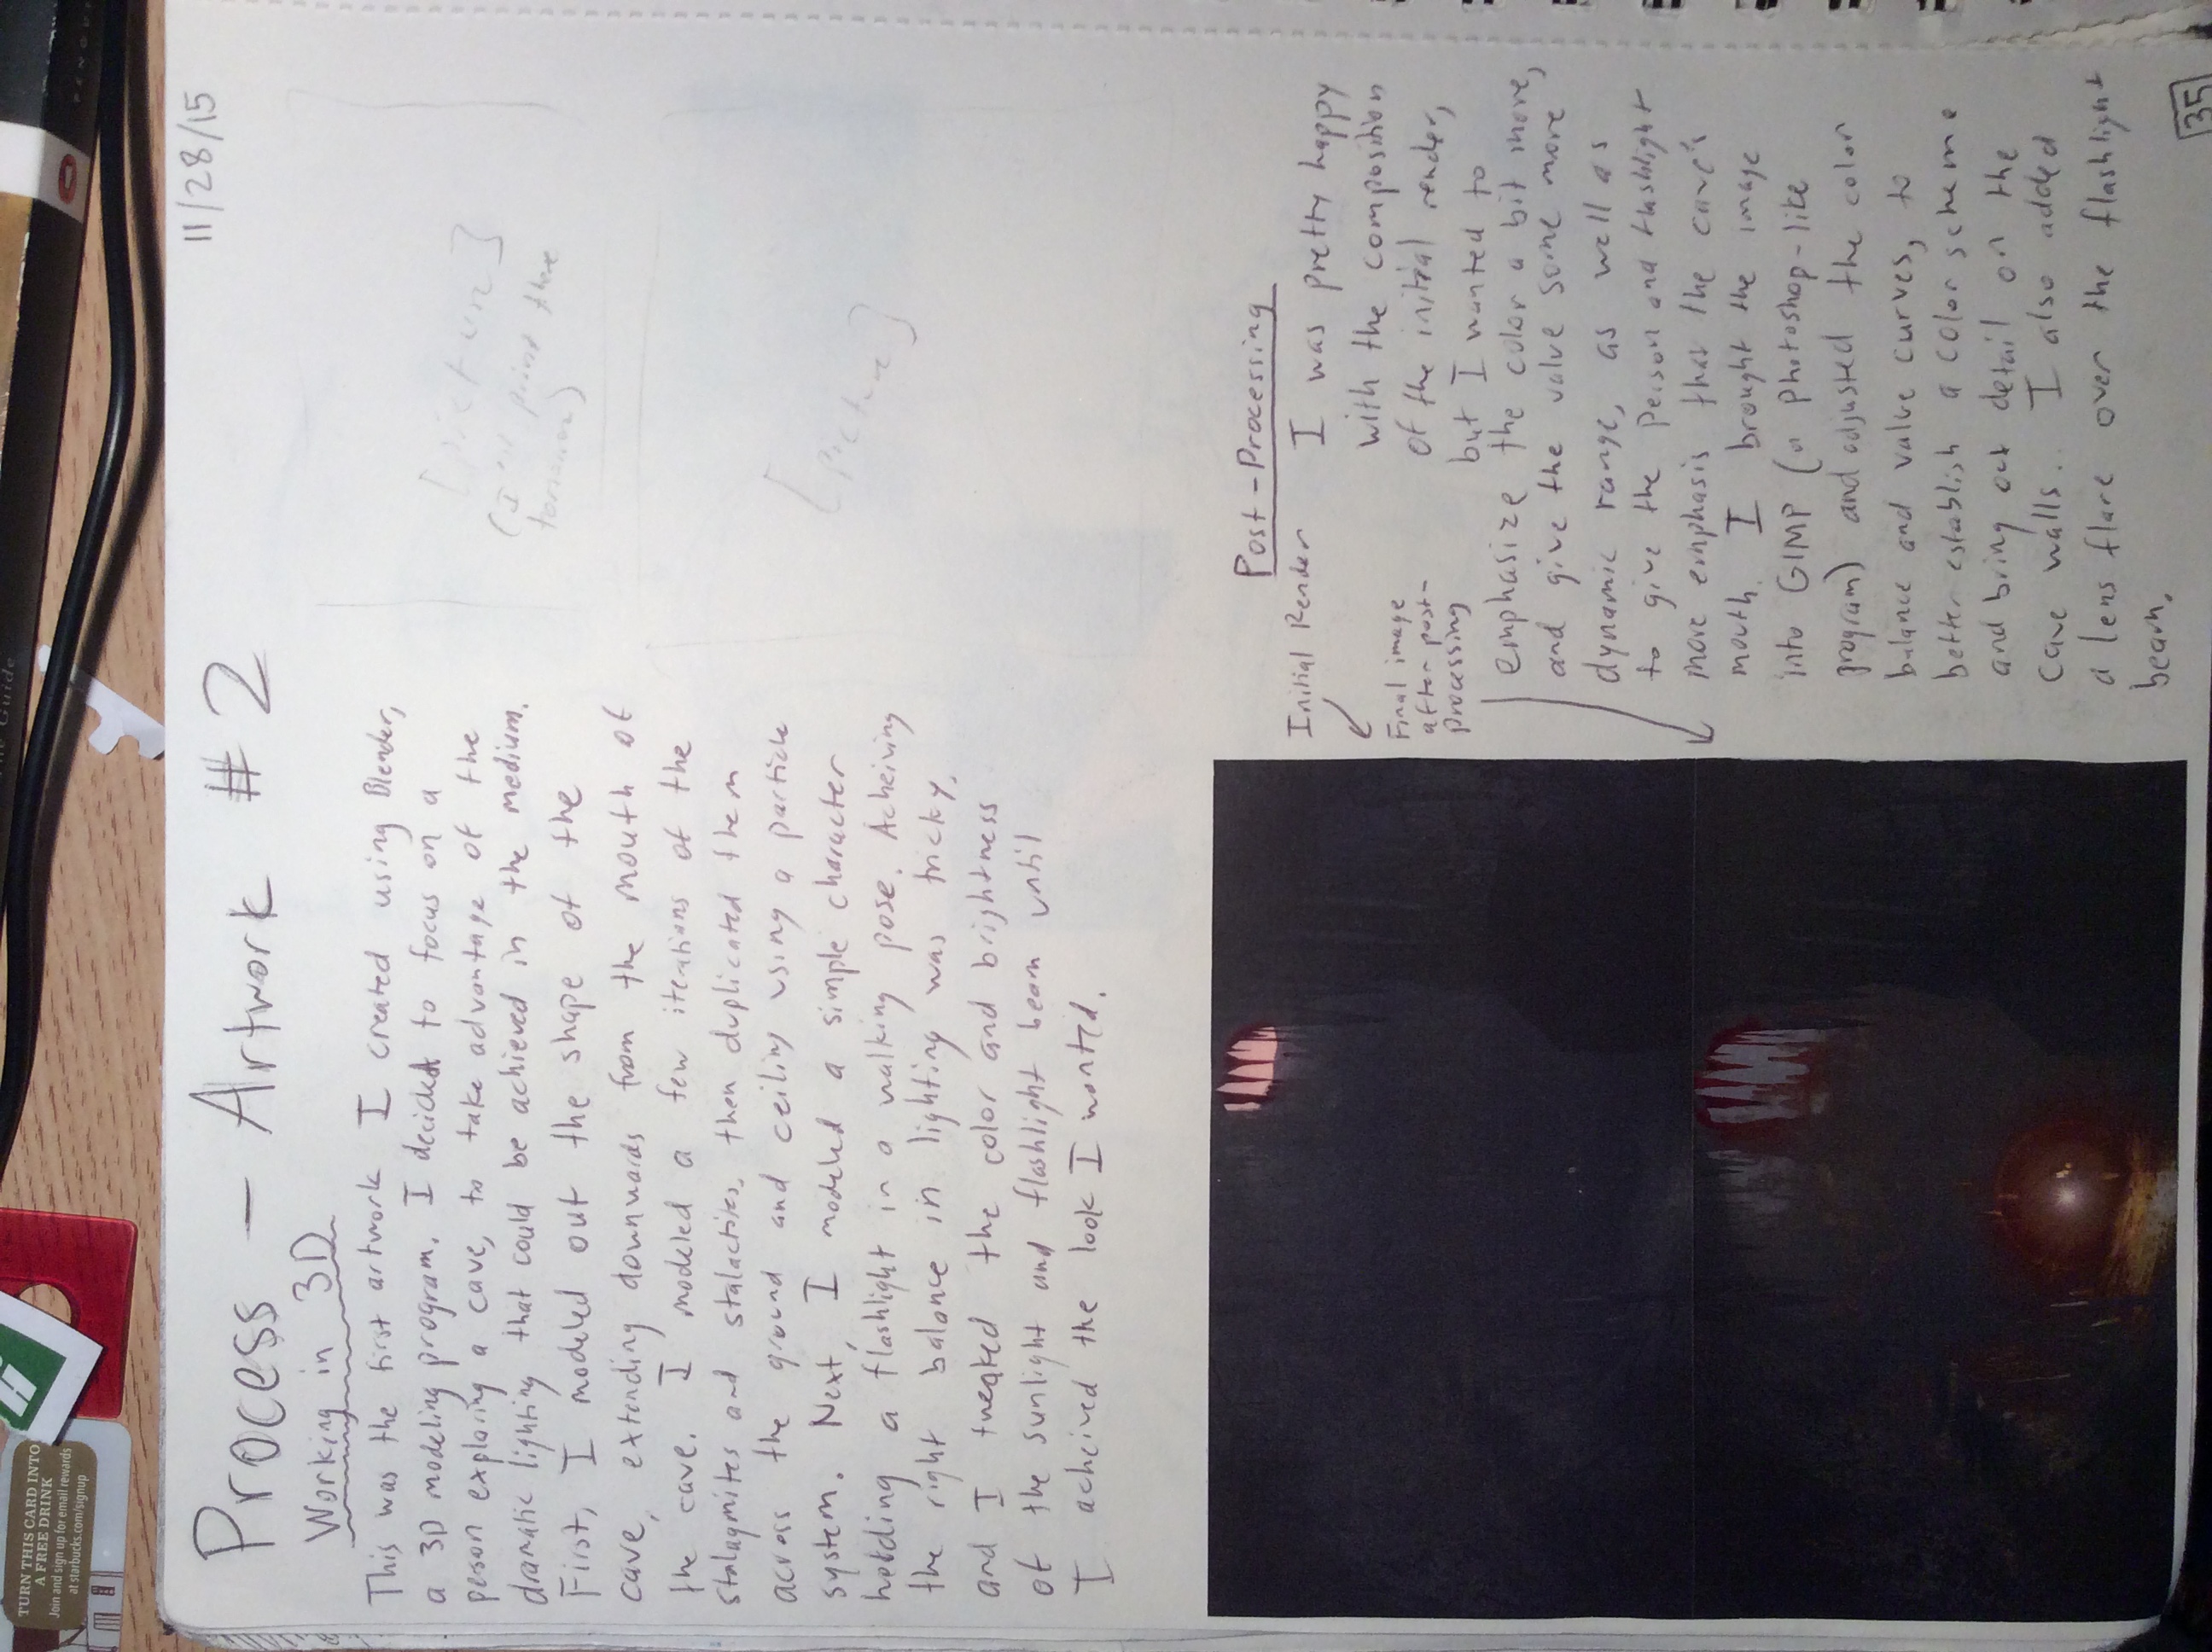 11/28/15
Process – Artwork #2
Working in 3D
This was the first artwork I created using Blender,
a 3D modeling program. I decided to focus on a
person exploring a cave, to take advantage of the
dramatic lighting that could be achieved in the medium.
First, I modeled out the shape of the
cave, extending downwards from the mouth of
the cave. I modeled a few iterations of the
stalagmites and stalactites, then duplicated them
across the ground and ceiling using a particle
system. Next, I modeled a simple character
holding a flashlight in a walking pose. Acheiving
the right balance in lighting was tricky,
and I tweaked the color and brightness
of the sunlight and flashlight beam until
I acheived the look I wanted.
[picture]
(I'll print these
tomorrow)
[picture]
Post-Processing
Initial Render
Final image
after post-
processing
I was pretty happy
with the composition
of the initial render,
but I wanted to
emphasize the color a bit more,
and give the value some more
dynamic range, as well as
to give the person and flashlight
more emphasis that the cave's
mouth. I brought the image
into GIMP (a Photoshop-like
program) and adjusted the color
balance and value curves, to
better establish a color scheme
and bring out detail on the
cave walls. I also added
a lens flare over the flashlight
beam.
35
TURN THIS CARD INTO
A FREE DRINK
Join and sign up for email rewards
at starbucks.com/signup
Guide